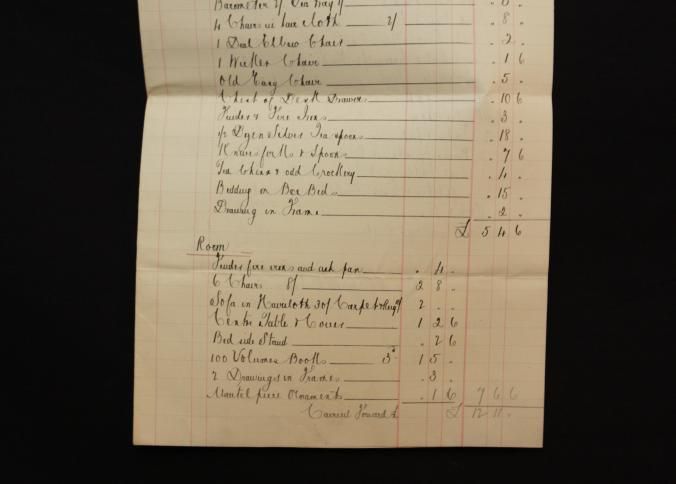 Barometer
4 Chairs in hair cloth 2/ . 8 .
1 Deal Elbow Chair . 2 .
1 Wicker Chair . 1 6
Old Easy Chair . 5 .
Chest of Desk Drawers . 10 6
Fender & Fire Irons . 3 .
1/2 Dozen Silver Tea spoons . 18 .
Knives forks & Spoons . 7 6
Tea China & odd Crockery . 4 .
Bedding in Box Bed . 15 .
Drawing in Frame . 2 .
£ 5 4 6
Room
Fender fire irons and ash pan . 4 .
6 Chairs 8/ 2 8 .
Sofa in Haircloth 30/ Carpet & Rug 2 . .
Centre Table & Cover 1 2 6
Bed side Stand . 2 6
100 Volumes Books 3d 1 5 .
2 Drawings in Frames . 3 .
Mantel piece Ornaments . 1 6 7 6 6
Carried Forward £ 12 11 .